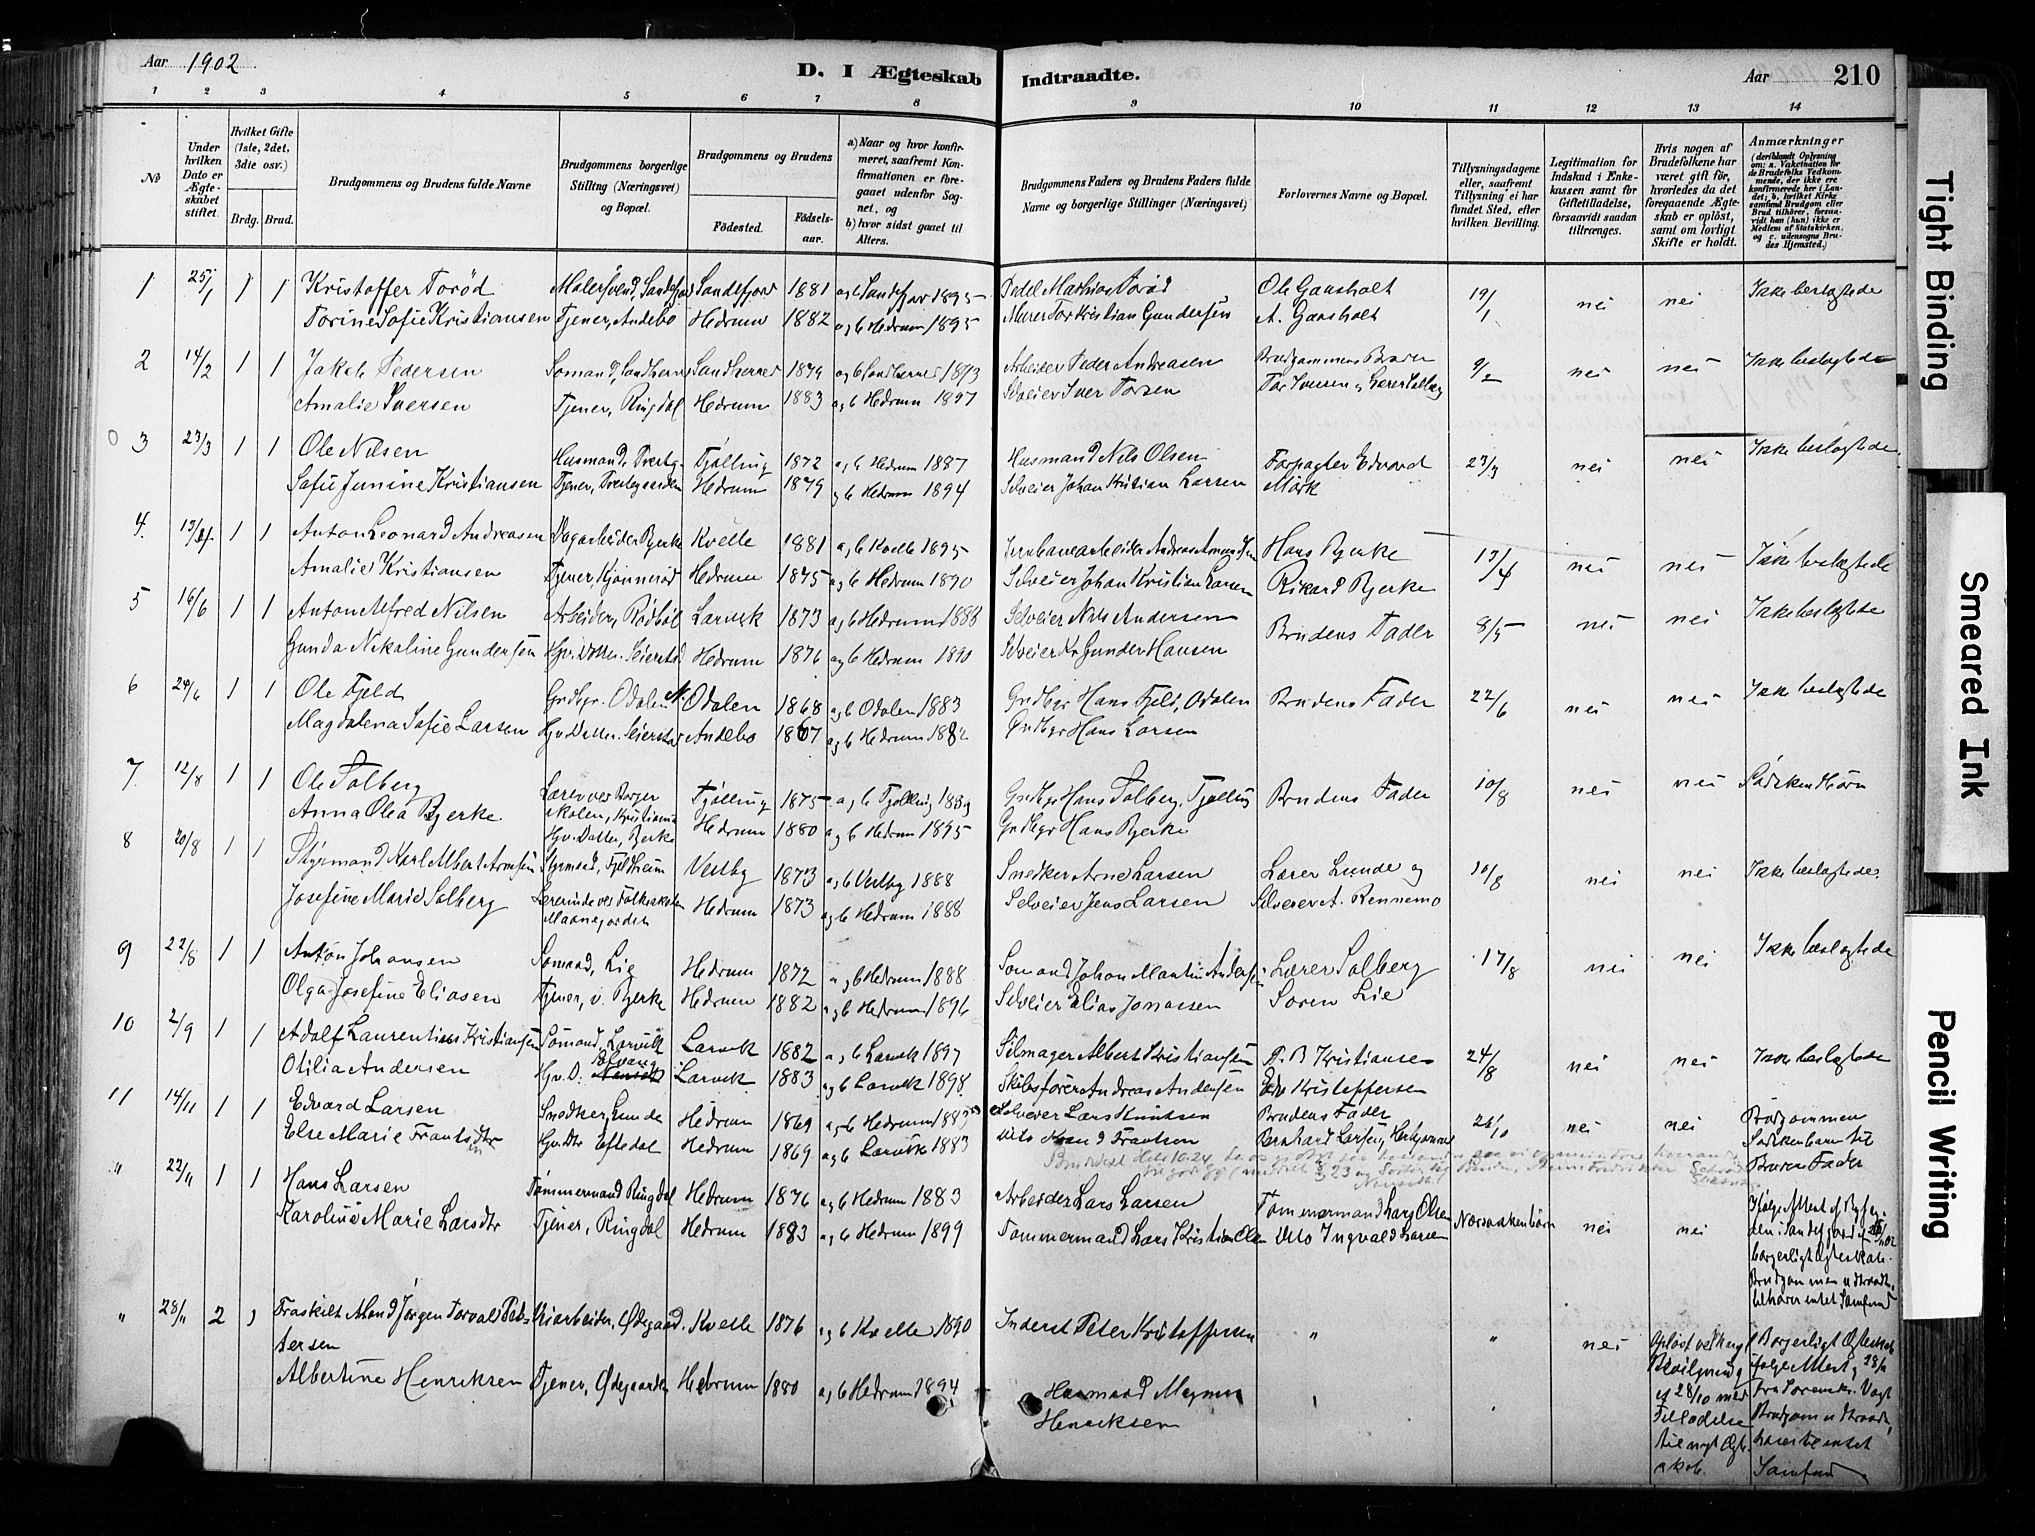 Aar 1902
D. I Ægteskab Indtraadte.
Aar 210
1 2 3 4 5 6 7 8 9 10 11 12 13 14
No
Under hvilken Dato er Ægteskabet stiftet.
Hvilket Gifte (1ste, 2det, 3die osv.)
Brdg. Brud.
Brudgommens og Brudens fulde Navne
Brudgommens borgerlige Stilling (Næringsvei) og Bopæl.
Brudgommens og Brudens
Fødested. Fødselsaar.
a) Naar og hvor konfirmeret, saafremt Konfirmationen er foregaaet udenfor Sognet, og
b) hvor sidst gaaet til Alters.
Brudgommens Faders og Brudens Faders fulde Navne og borgerlige Stillinger (Næringsvei)
Forlovernes Navne og Bopæl.
Tillysningsdagene eller, saafremt Tillysning ei har fundet Sted, efter hvilken Bevilling.
Legitimation for Indskud i Enkekassen samt for Giftetilladelse, forsaavidt saadan tiltrænges.
Hvis nogen af Brudefolkene har været gift før, hvorledes da det foregaaende Ægteskab er opløst, samt om lovligt Skifte er holdt.
Anmærkninger
(deriblandt Oplysning om: a. Vakcination for de Brudefolks Vedkommende, der ikke ere konfirmerede her i Landet; b. hvilket Kirkesamfund Brudgom eller Brud tilhører, forsaavidt han (hun) ikke er Medlem af Statskirken, og c. udensogns Brudes Hjemsted.)
1 25/1 1 1 Kristoffer Torød Malersvend, Sandefjord Sandefjord 1881 a og b Sandefjord 1895 Ole Gaasholt 19/1 nei nei Ikke beslegtede
Torine Sofie Kristiansen Tjener, Andebo Hedrum 1882 a og b Hedrum 1895 Murer Tor Kristian Gundersen A. Gaasholt
2 14/2 1 1 Jakob Pedersen Sandherred 1879 a og b Sandherred 1893 Arbeider Peder Andreasen Brudgommens Broder 9/2 nei nei Ikke beslegtede
Amalie Iversen Tjener, Ringdal Hedrum 1883 a og b Hedrum 1897 Selveier Iver Torsen
3 23/3 1 1 Ole Nilsen Husmand, Tjølling 1872 a og b Hedrum 1887 Husmand Nils Olsen Forpagter Edvard 23/3 nei nei Ikke beslegtede
Sofie Jensine Kristiansen Tjener, Hedrum 1879 a og b Hedrum 1894 Selveier Johan Kristian Larsen Mørk
4. 13/4 1 1 Anton Leonard Andreasen Dagarbeider Bjerke Kvelle 1881 a og b Kvelle 1895 Jernbanearbeider Andreas Hans Bjerke 13/4 nei nei Ikke beslegtede
Amalie Kristiansen Tjener, Kjønnerød Hedrum 1875 a og b Hedrum 1890 Selveier Johan Kristian Larsen Rikard Bjerke
5 16/6 1 1 Anton Alfred Nilsen Arbeider, Rødbøl Larvik 1873 a og b Hedrum 1888 Selveier Nils Andersen Brudens Fader 8/5 nei nei Ikke beslegtede
Gunda Nikoline Gundersen Hjv. Datter, Seierstad Hedrum 1876 a og b Hedrum 1890 Selveier Gunder Hansen
6 24/6 1 1 Ole Fjeld Grdbgr. Odalen N. Odalen 1868 a og b Odalen 1883 Grdbgr Hans Fjeld, Odalen Brudens Fader 22/6 nei nei Ikke beslegtede
Magdalena Sofie Larsen Hjv. Datter. Seierstad Andebo 1867 a og b Hedrum 1882 Grdbgr Hans Larsen
7 12/8 1 1 Ole Tolberg Lærer ved Borger Tjølling 1875 a og b Tjølling 1889 Grdbgr Hans Tolberg, Tjølling Brudens Fader 10/8 nei nei Sødskenbørn
Anna Olea Bjerke skolen, Kristiania Hjv. Datter, Bjerke Hedrum 1880 a og b Hedrum 1895 Grdbgr Hans Bjerke
8 20/8 1 1 Styrmand Karl Albert Arnesen Styrmand, Fjeldheim Vestby 1873 a og b Vestby 1888 Snedker Arne Larsen Lærer Lunde og 10/8 nei nei Ikke beslegtede
Josefine Marie Solberg Lærerinde ved Folkeskolen Hedrum 1873 a og b Hedrum 1888 Selveier Jens Larsen Selveier A. Rennemo
9 22/8 1 1 Anton Johansen Sømand, Lie Hedrum 1872 a og b Hedrum 1888 Sømand Johan Martin Andersen Lærer Solberg 17/8 nei nei Ikke beslegtede
Olga Josefine Eliasen Tjener, v. Bjerke Hedrum 1882 a og b Hedrum 1896 Selveier Elias Jonassen Søren Lie
10 2/9 1 1 Adolf Laurentius Kristiansen Sømand, Larvik Larvik 1882 a og b Larvik 1897 Seilmager Albert Kristiansen P. B Kristiansen 24/8 nei nei Ikke beslegtede
Otilia Andersen Hjv. D. Larvik 1883 a og b Larvik 1898 Skibsfører Andreas Andersen Edv Kristoffersen
11 14/11 1 1 Edvard Larsen Snedker, Lunde Hedrum 1869 a og b Hedrum 1883 Selveier Lars Knudsen Brudens Fader 26/10 nei nei Brudgommen
Else Marie Frantsdtr Hjv. Dtr Eftedal Hedrum 1869 a og b Larvik 1883 Dito Frantsen Bernhard Larsen, Sødskenbarn til
Brudens Fader
" 22/11 1 1 Hans Larsen Tømmermand Ringdal Hedrum 1876 a og b Hedrum 1883 Arbeider Lars Larsen Tømmermand Lars Olsen Næssødskenbørn nei nei
Karoline Marie Larsdtr Tjener, Ringdal Hedrum 1883 a og b Hedrum 1899 Tømmermand Lars Kristian Olsen Dito Ingvald Larsen
Ifølge Attest af Byfogden i Sandefjord
borgerligt Ægteskab.
Brudgommen udtraadt,
tilhører intet Samfund
" 28/11 2 1 Fraskilt Mand Jørgen Torvald Petersen Veiarbeider, Ødegaard. Kvelle 1876 a og b Kvelle 1890 Inderst Peter Kristoffersen " " nei
Albertine Henriksen Tjener, Ødegaarden Hedrum 1880 a og b Hedrum 1894 Husmand Magnus Henriksen
Opløst ved kngl Bevilgning af 28/10 med Tilladelse til nyt Ægteskab.
Borgerligt Ægteskab ifølge Attest af 28/11 fra Sorenskr. Vogt Brudgom udtraadt, hører til intet Samfund
Tight Binding
Smeared Ink
Pencil Writing